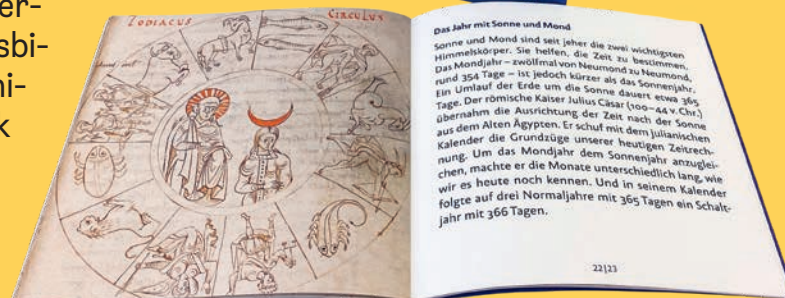 er-
sbi-
ni-
k
ZODIACUS
CIRCULUS
Das Jahr mit Sonne und Mond
Sonne und Mond sind seit jeher die zwei wichtigsten
Himmelskörper. Sie helfen, die Zeit zu bestimmen.
Das Mondjahr – zwölfmal von Neumond zu Neumond,
rund 354 Tage – ist jedoch kürzer als das Sonnenjahr.
Ein Umlauf der Erde um die Sonne dauert etwa 365
Tage. Der römische Kaiser Julius Cäsar (100–44 v. Chr.)
übernahm die Ausrichtung der Zeit nach der Sonne
aus dem Alten Ägypten. Er schuf mit dem julianischen
Kalender die Grundzüge unserer heutigen Zeitrech-
nung. Um das Mondjahr dem Sonnenjahr anzuglei-
chen, machte er die Monate unterschiedlich lang, wie
wir es heute noch kennen. Und in seinem Kalender
folgte auf drei Normaljahre mit 365 Tagen ein Schalt-
jahr mit 366 Tagen.
22|23